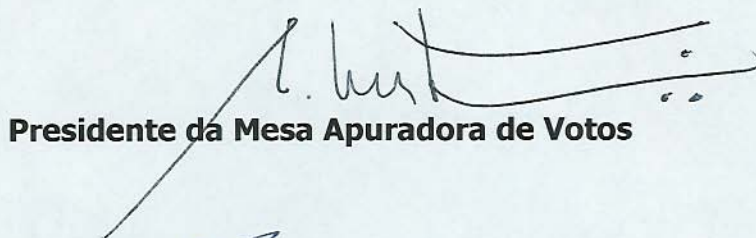 Presidente da Mesa Apuradora de Votos